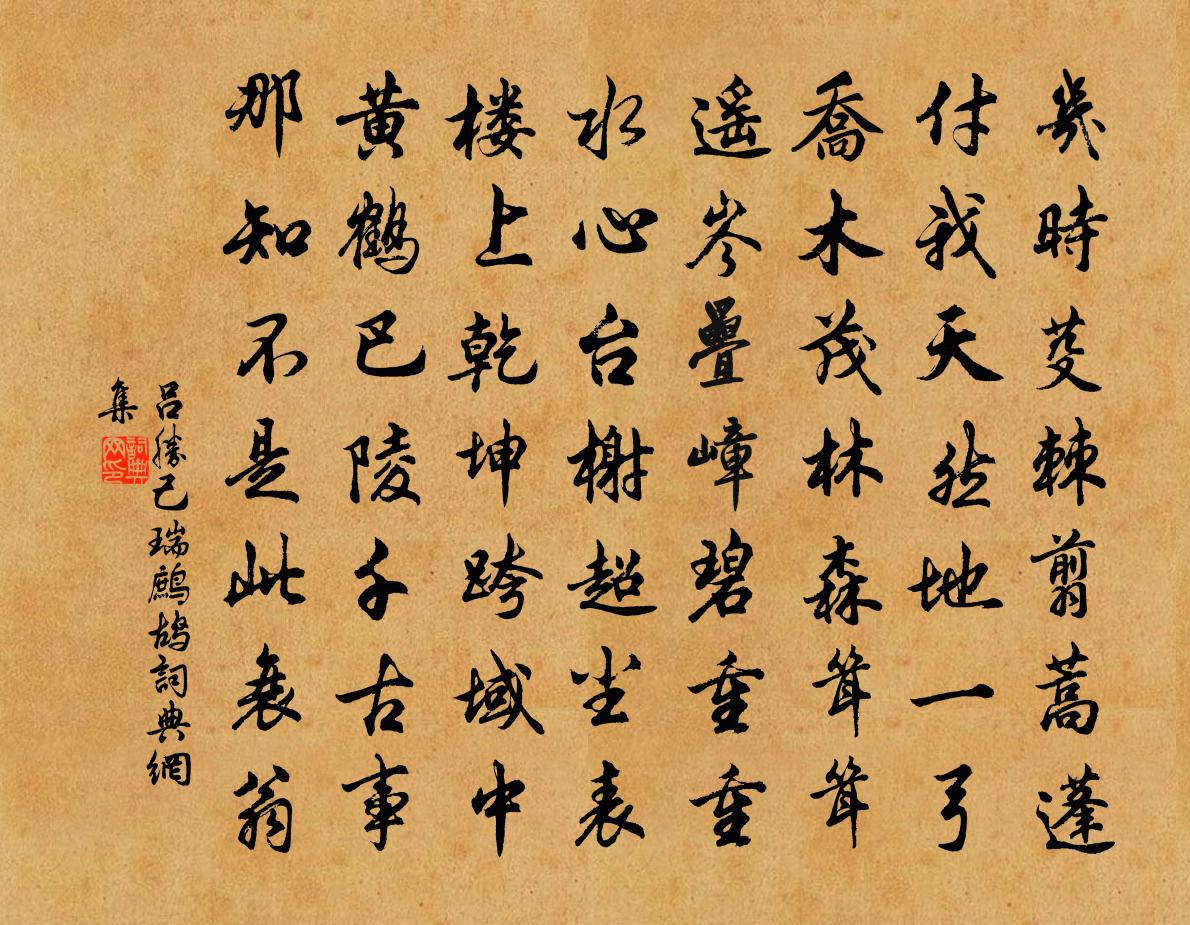 幾時芟棘剪蒿蓬
付我天然地一弓
喬木茂林森耸耸
遥岑疊嶂碧重重
水心台榭超尘表
楼上乾坤跨域中
黄鶴已陵千古事
那知不是此衰翁
吕勝己瑞鷓鸪詞典網
集